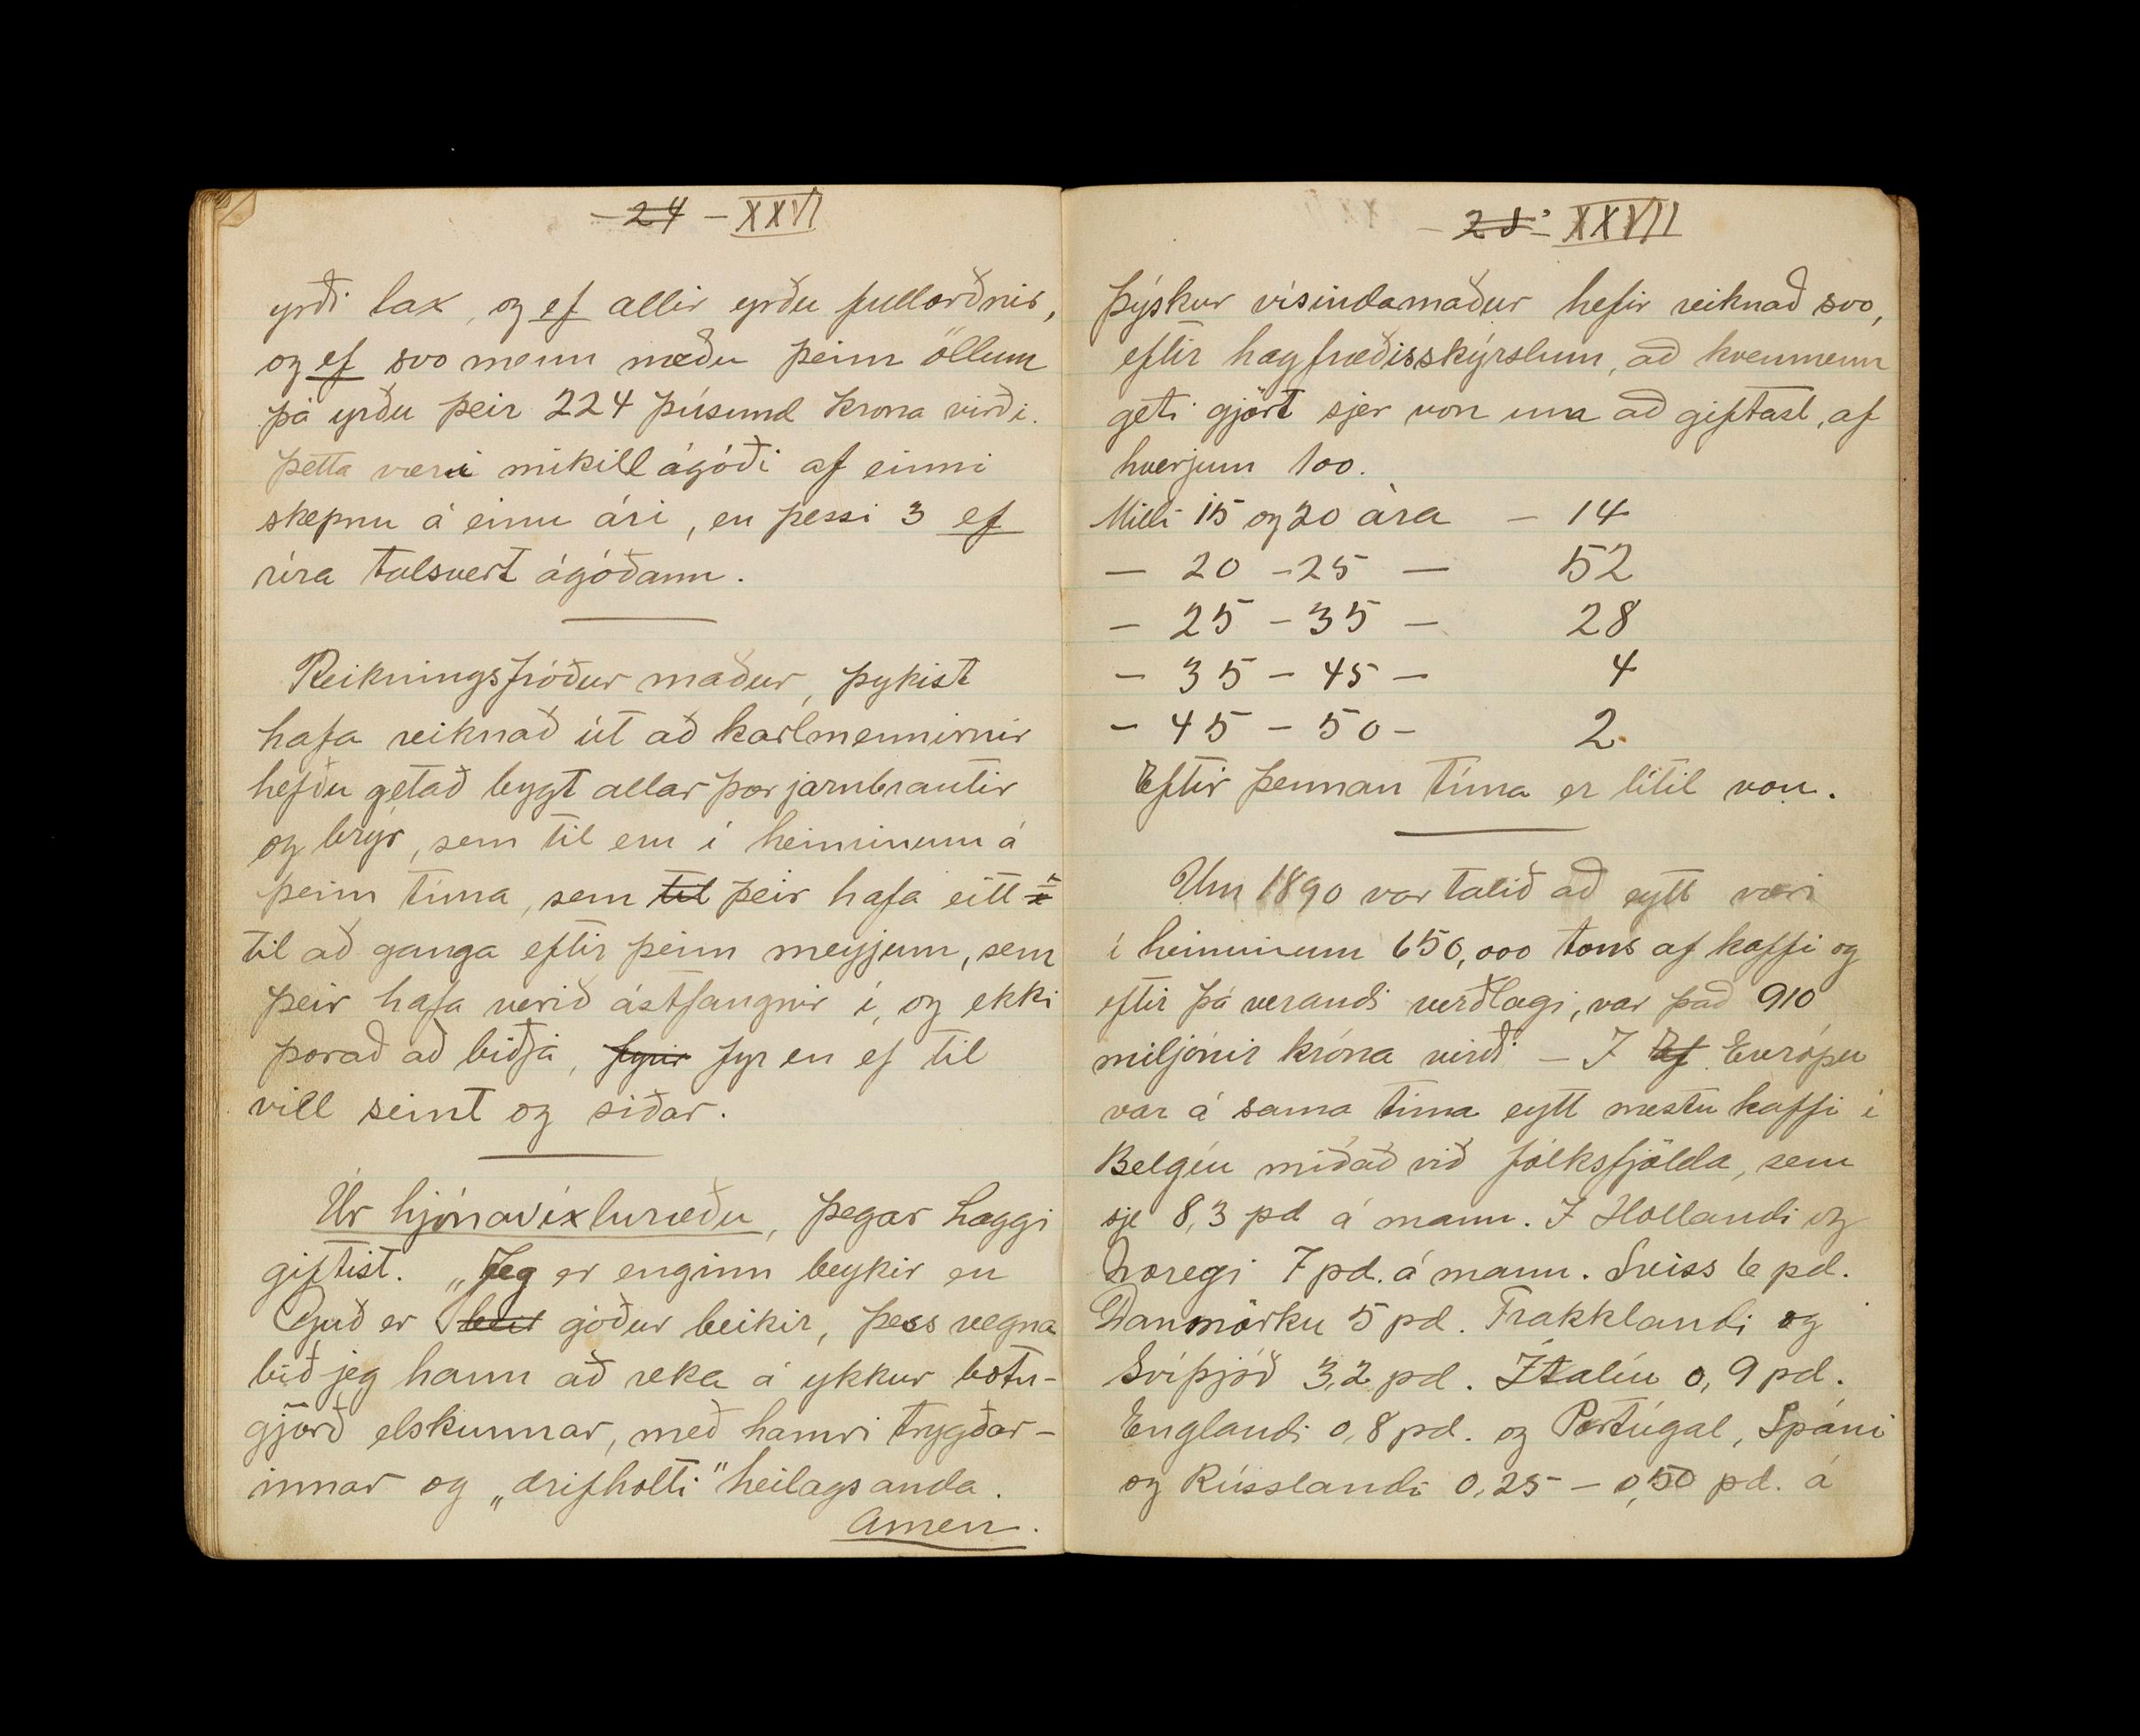 — 24 — XXVI
yrði lax, og ef allir yrðu fullorðnir,
og ef svo menn næðu þeim öllum
þá yrðu þeir 224 þúsund króna virði.
þetta væri mikill ágóði af einni
skepnu á einu ári, en þessi 3 ef
rira talsvert ágóðann.
Reikningsfróður maður, þykist
hafa reiknað út að karlmennirnir
hefðu getað bygt allar þær jarnbrautir
og brýr, sem til eru í heiminum á
þeim tíma, sem til þeir hafa eitt
til að ganga eftir þeim meyjum, sem
þeir hafa verið ástfangnir í, og ekki
þorað að biðja, fyrir fyr en ef til
vill seint og siðar.
Úr hjónavíxluræðu, þegar Laggi
giftist. „Jeg er enginn beykir en
Guð er góður beikir, þess vegna
bið jeg hann að reka á ykkur botn-
gjörð elskunnar, með hamri trygðar-
innar og „drifholti" heilags anda.
Amen.
— XXVII
Þýskur vísindamaður hefir reiknað svo,
eftir hagfræðisskýrslum, að kvenmenn
geti gjört sjer von um að giftast, af
hverjum 100.
Milli 15 og 20 ára — 14
— 20 - 25 — 52
— 25 - 35 — 28
— 35 - 45 — 4
— 45 - 50 - 2
Eftir þennan tíma er lítil von.
Um 1890 var talið að eytt væri
í heiminum 650,000 tons af kaffi og
eftir þá verandi verðlagi, var það 910
miljónir króna virði — Í Af Evrópu
var á sama tíma eytt mestu kaffi í
Belgíu miðað við fólksfjölda, sem
sje 8,3 pd á mann. Í Hollandi og
Noregi 7 pd. á mann. Sviss 6 pd.
Danmörku 5 pd. Frakklandi og
Svíþjóð 3,2 pd. Ítalíu 0,9 pd.
Englandi 0,8 pd. og Portúgal, Spáni
og Rússlandi 0,25 — 0,50 pd. á